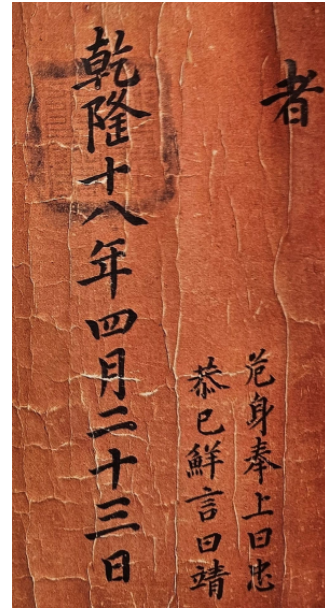 者
危身奉上曰忠
恭己鮮言曰靖
乾隆十八年四月二十三日